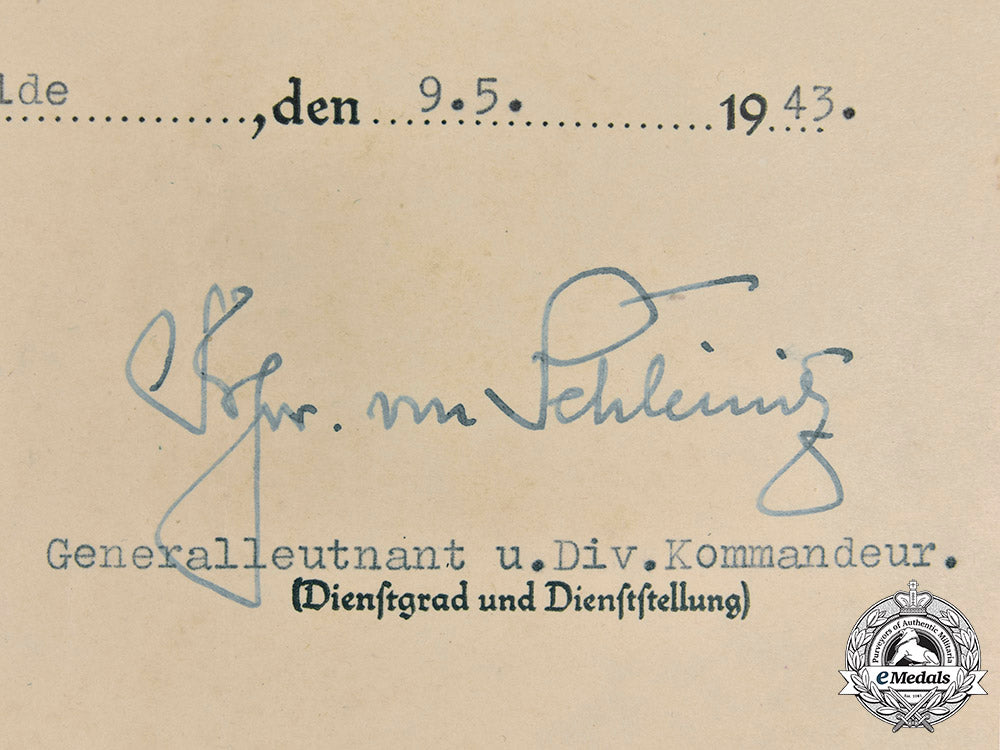 lde, den 9.5. 1943.
Frhr. von Schleinitz
Generalleutnant u.Div.Kommandeur.
(Dienſtgrad und Dienſtſtellung)
Purveyors of Authentic Militaria
eMedals